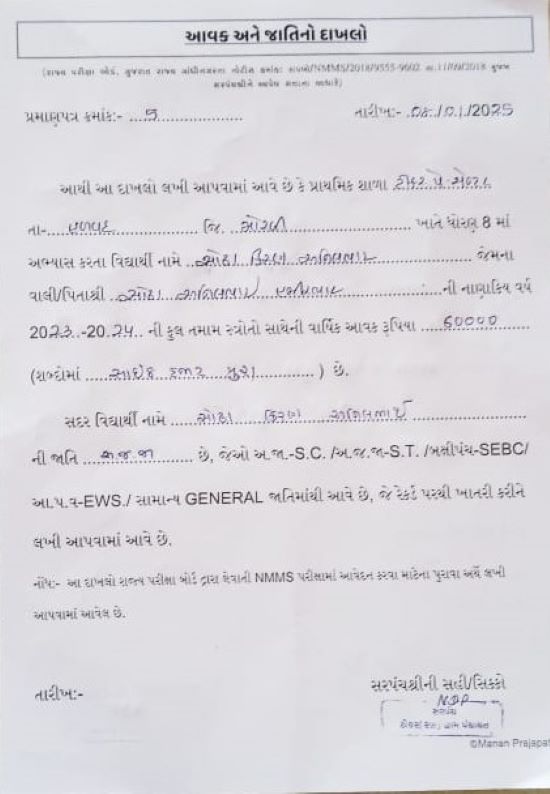 આવક અને જાતિનો દાખલો
(રાજ્ય પરીક્ષા બોર્ડ, ગુજરાત રાજ્ય ગાંધીનગરના નોટીસ ક્રમાંક: રાપબો/NMMS/2018/9555-9602 તા.11/09/2018 મુજબ
સરપંચશ્રીને આપેલ સત્તાના આધારે)
પ્રમાણપત્ર ક્રમાંક:- ...5.....................
તારીખ:- .08./.01./2025
આથી આ દાખલો લખી આપવામાં આવે છે કે પ્રાથમિક શાળા ટીકર પે સેન્ટર
તા-....હળવદ.................. જિ. ..મોરબી............................ ખાતે ધોરણ 8 માં
અભ્યાસ કરતા વિદ્યાર્થી નામે ..સોઢા કિરણ અનિલભાઇ................ જેમના
વાલી/પિતાશ્રી ..સોઢા અનિલભાઇ ....................ની નાણાકિય વર્ષ
2023.-20.24.. ની કુલ તમામ સ્ત્રોતો સાથેની વાર્ષિક આવક રૂપિયા ....60000
(શબ્દોમાં ......સાઇઠ હજાર પુરા............. ) છે.
સદર વિદ્યાર્થી નામે ....સોઢા કિરણ અનિલભાઈ.....................
ની જાતિ ....અ.જ.જા........ છે, જેઓ અ.જા.-S.C. /અ.જ.જા-S.T. /બક્ષીપંચ-SEBC/
આ.પ.વ-EWS./ સામાન્ય GENERAL જાતિમાંથી આવે છે, જે રેકર્ડ પરથી ખાતરી કરીને
લખી આપવામાં આવે છે.
નોંધ:- આ દાખલો રાજ્ય પરીક્ષા બોર્ડ દ્વારા લેવાની NMMS પરીક્ષામાં આવેદન કરવા માટેના પુરાવા અર્થે લખી
આપવામાં આવેલ છે.
સરપંચશ્રીની સહી/સિક્કો
તારીખ:-
સરપંચ
ગ્રામ પંચાયત
©Manan Prajapat